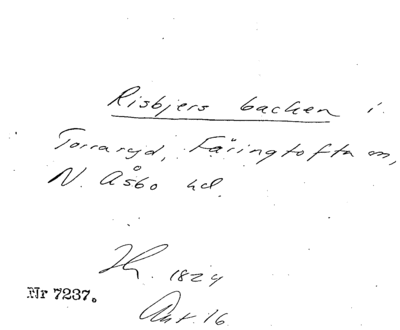 Risbjers backen i
Torraryd, Färingtofta sn,
N. Åsbo hd.
1824
Nr 7237.
Ant. 16